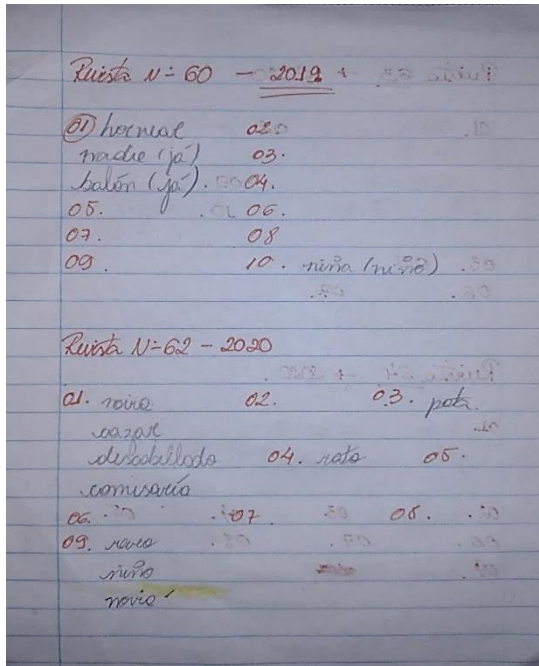 Revista N= 60 - 2019
01 hornear 02.
madre (já) 03.
balón (já). 04.
05. 06.
07. 08
09. 10. niña (niño)
Revista N=62 - 2020
01. novio 02. 03. pata.
cazar
descabellado 04. rata 05.
comisario
06. 07 08.
09. 
niño
novio